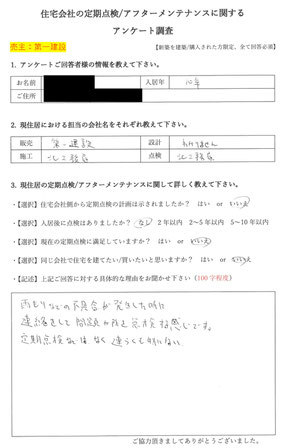 住宅会社の定期点検/アフターメンテナンスに関する
アンケート調査
売主：第一建設
【新築を建築/購入された方限定、全て回答必須】
1. アンケートご回答者様の情報を教えて下さい。
お名前
入居年
ご住所
2. 現住居における担当の会社名をそれぞれ教えて下さい。
販売 第一建設 設計
施工 点検
3. 現住居の定期点検/アフターメンテナンスに関して詳しく教えて下さい。
・【選択】住宅会社側から定期点検の計画は示されましたか？ はい or いいえ
・【選択】入居後に点検はありましたか？ なし 2年以内 2～5年以内 5～10年以内
・【選択】現在の定期点検に満足していますか？ はい or いいえ
・【選択】同じ会社で住宅を建てたい/買いたいと思いますか？ はい or いいえ
・【記述】上記ご回答に対する具体的な理由をお聞かせ下さい（100字程度）
雨もりなどの不具合が発生した時に
連絡をして問題か所を点検な感じです。
定期点検などはなく
ご協力頂きましてありがとうございました。